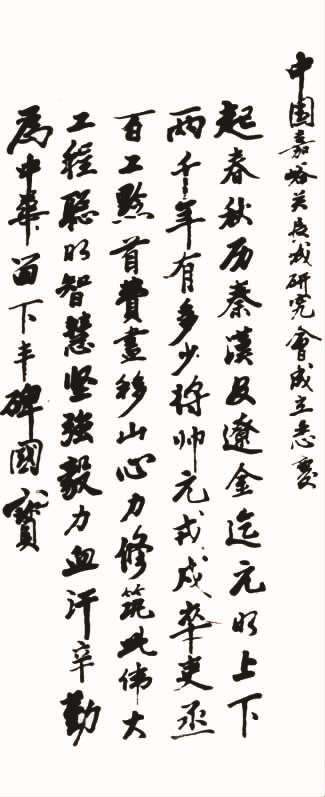 中国嘉峪关长城研究會成立志慶
起春秋历秦漢及遼金迄元明上下
两千年有多少将帅元戎戍卒吏丞
百工黔首費盡移山心力修筑此伟大
工程聪明智慧坚強毅力血汗辛勤
為中華留下丰碑國寳